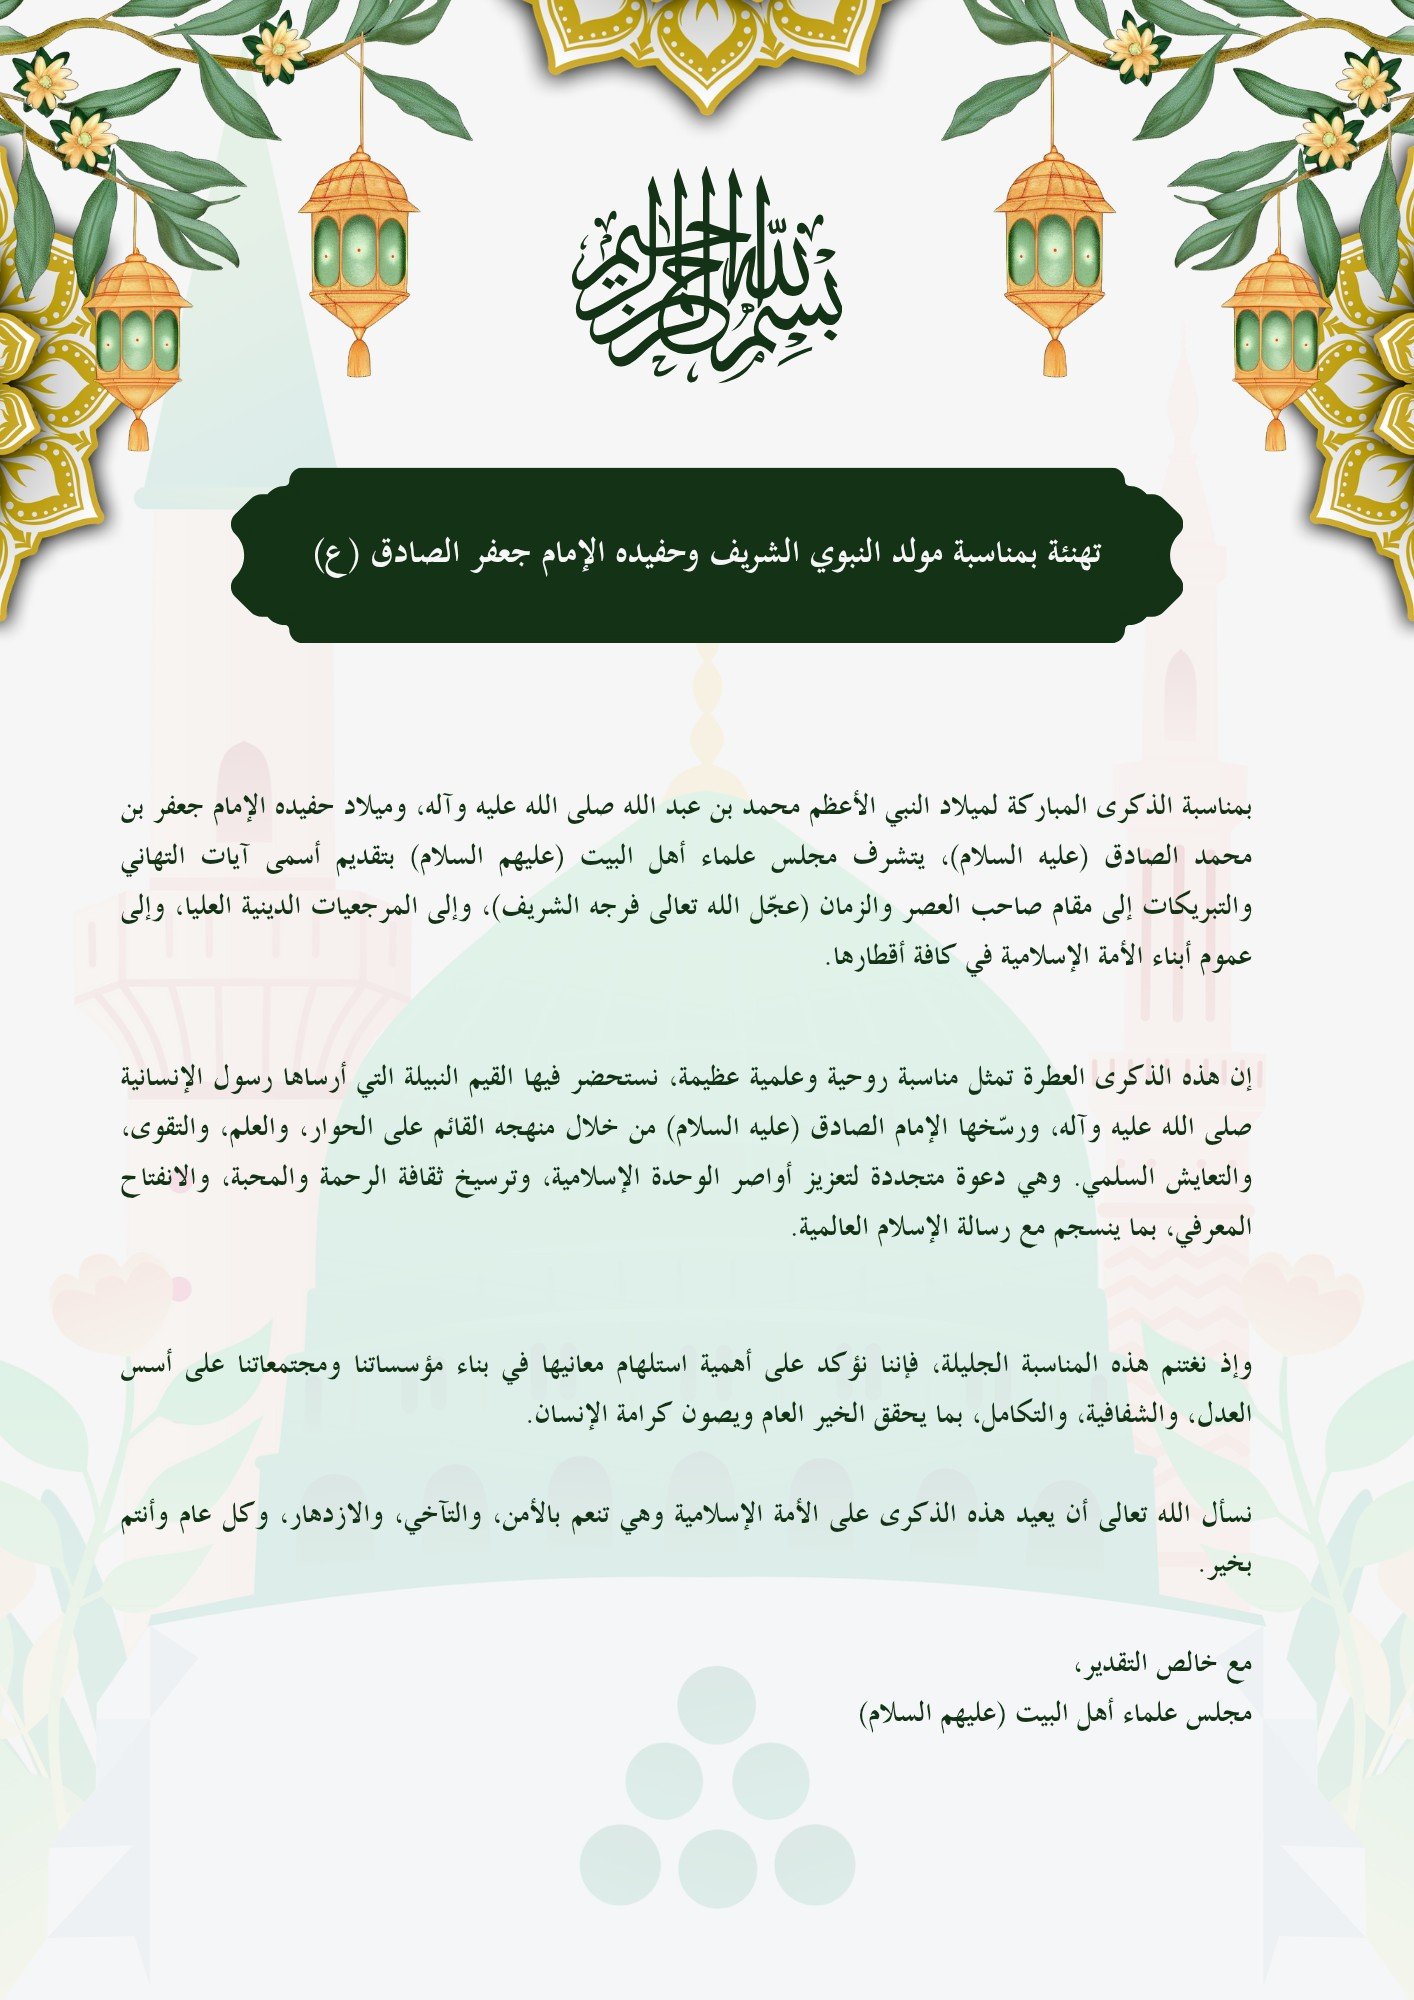 بسم الله الرحمن الرحيم
تهنئة بمناسبة مولد النبوي الشريف وحفيده الإمام جعفر الصادق (ع)
بمناسبة الذكرى المباركة لميلاد النبي الأعظم محمد بن عبد الله صلى الله عليه وآله، وميلاد حفيده الإمام جعفر بن
محمد الصادق (عليه السلام)، يتشرف مجلس علماء أهل البيت (عليهم السلام) بتقديم أسمى آيات التهاني
والتبريكات إلى مقام صاحب العصر والزمان (عجّل الله تعالى فرجه الشريف)، وإلى المرجعيات الدينية العليا، وإلى
عموم أبناء الأمة الإسلامية في كافة أقطارها.
إن هذه الذكرى العطرة تمثل مناسبة روحية وعلمية عظيمة، نستحضر فيها القيم النبيلة التي أرساها رسول الإنسانية
صلى الله عليه وآله، ورسّخها الإمام الصادق (عليه السلام) من خلال منهجه القائم على الحوار، والعلم، والتقوى،
والتعايش السلمي. وهي دعوة متجددة لتعزيز أواصر الوحدة الإسلامية، وترسيخ ثقافة الرحمة والمحبة، والانفتاح
المعرفي، بما ينسجم مع رسالة الإسلام العالمية.
وإذ نغتنم هذه المناسبة الجليلة، فإننا نؤكد على أهمية استلهام معانيها في بناء مؤسساتنا ومجتمعاتنا على أسس
العدل، والشفافية، والتكامل، بما يحقق الخير العام ويصون كرامة الإنسان.
نسأل الله تعالى أن يعيد هذه الذكرى على الأمة الإسلامية وهي تنعم بالأمن، والتآخي، والازدهار، وكل عام وأنتم
بخير.
مع خالص التقدير،
مجلس علماء أهل البيت (عليهم السلام)